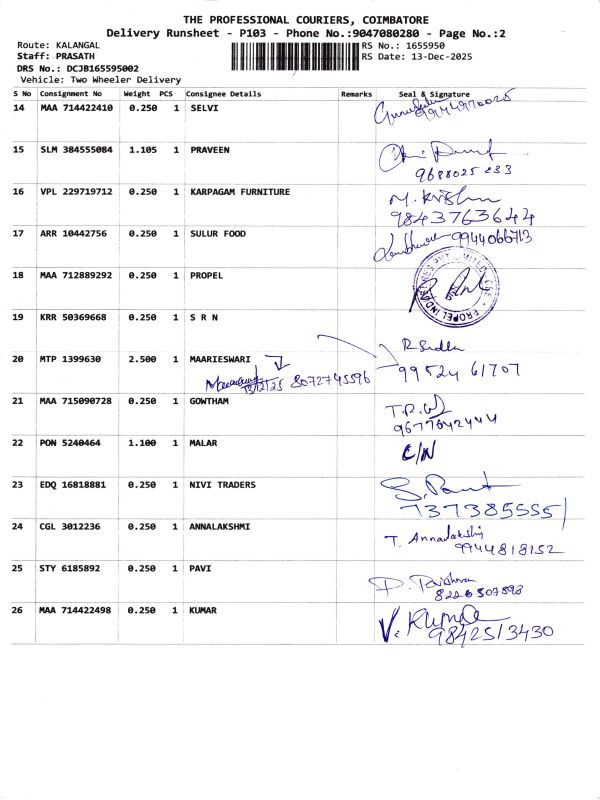 THE PROFESSIONAL COURIERS, COIMBATORE
Delivery Runsheet - P103 - Phone No.:9047080280 - Page No.:2
Route: KALANGAL
RS No.: 1655950
Staff: PRASATH
RS Date: 13-Dec-2025
DRS No.: DCJB165595002
Vehicle: Two Wheeler Delivery
S No Consignment No Weight PCS Consignee Details Remarks Seal & Signature
14 MAA 714422410 0.250 1 SELVI
9944970025
15 SLM 384555084 1.105 1 PRAVEEN
9688025233
16 VPL 229719712 0.250 1 KARPAGAM FURNITURE M. Krishna
9843763644
17 ARR 10442756 0.250 1 SULUR FOOD
9944066713
18 MAA 712889292 0.250 1 PROPEL
19 KRR 50369668 0.250 1 S R N
R Sudha
20 MTP 1399630 2.500 1 MAARIESWARI 99524 61707
13/12/25 8072745596
21 MAA 715090728 0.250 1 GOWTHAM
9677642444
22 PON 5240464 1.100 1 MALAR C/N
23 EDQ 16818881 0.250 1 NIVI TRADERS
7373855551
24 CGL 3012236 0.250 1 ANNALAKSHMI T. Annalakshmi
9944818152
25 STY 6185892 0.250 1 PAVI
8220507898
26 MAA 714422498 0.250 1 KUMAR V. Kumar
9842513430